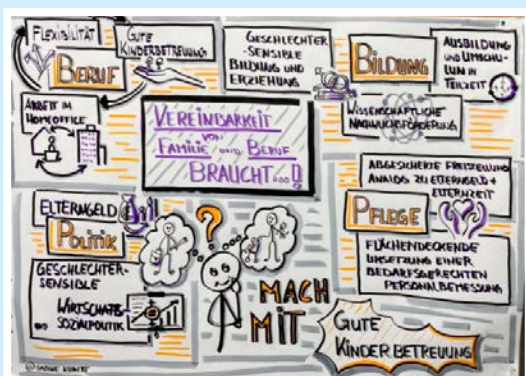 FLEXIBILITÄT
BERUF
GUTE
KINDERBETREUUNG
ARBEIT IM
HOMEOFFICE
GESCHLECHTER
-SENSIBLE
BILDUNG UND
ERZIEHUNG
BILDUNG
AUSBILDUNG
UND UMSCHU-
LUNG IN
TEILZEIT
WISSENSCHAFTLICHE
NACHWUCHSFÖRDERUNG
VEREINBARKEIT
VON
FAMILIE UND BERUF
BRAUCHT...!
ELTERNGELD
POLITIK
GESCHLECHTER-
SENSIBLE
WIRTSCHAFTS-
SOZIALPOLITIK
?
MACH
MIT
ABGESICHERTE FREISTELLUNG
ANALOG ZU ELTERNGELD +
ELTERNZEIT
PFLEGE
FLÄCHENDECKENDE
UMSETZUNG EINER
BEDARFSGERECHTEN
PERSONALBEMESSUNG
GUTE
KINDERBETREUUNG